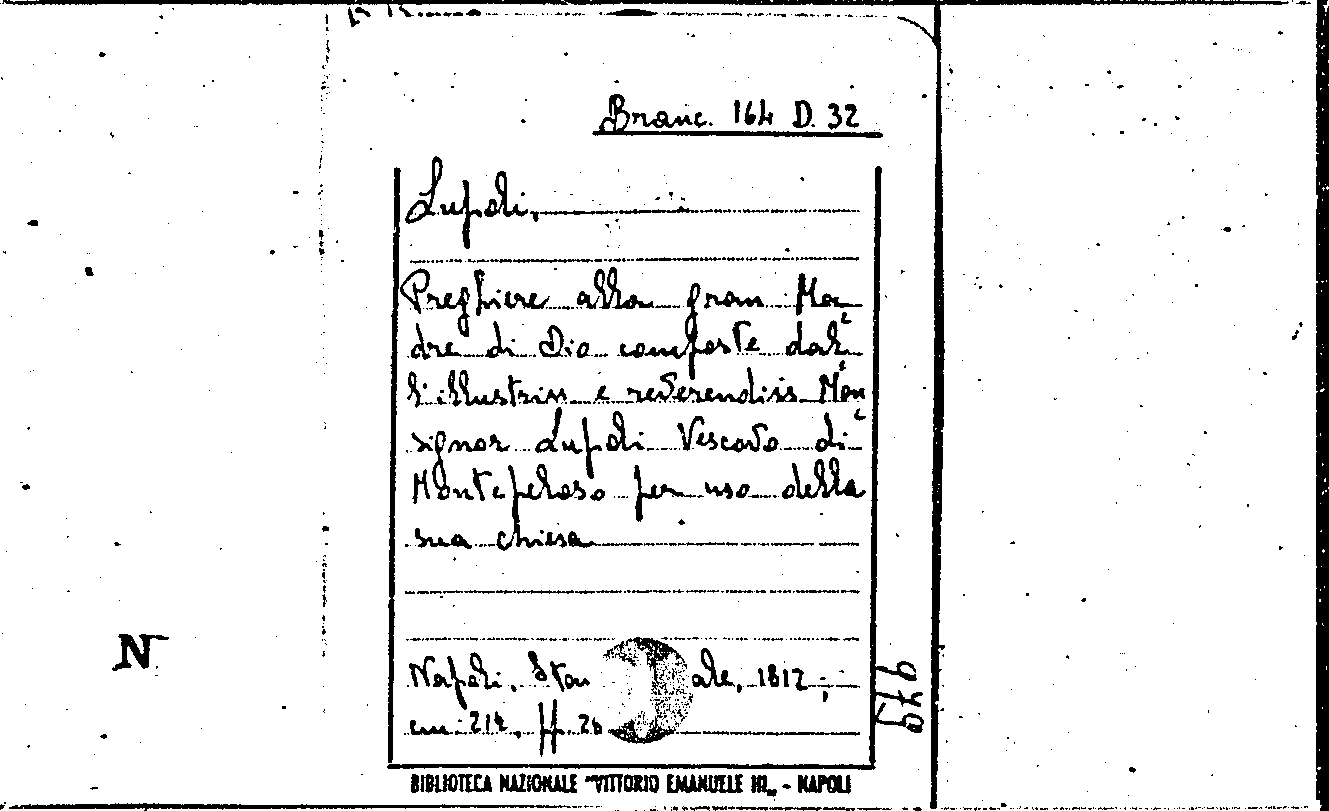 Branc. 164 D. 32
Lupoli.
Preghiere alla gran Ma-
dre di Dio composte dal-
l'illustriss e reverendiss Mon
signor Lupoli Vescovo di
Montepeloso per uso della
sua chiesa
Napoli, Stan ale, 1812;
cm. 214, pp. 26
BIBLIOTECA NAZIONALE "VITTORIO EMANUELE III„ - NAPOLI
N
979